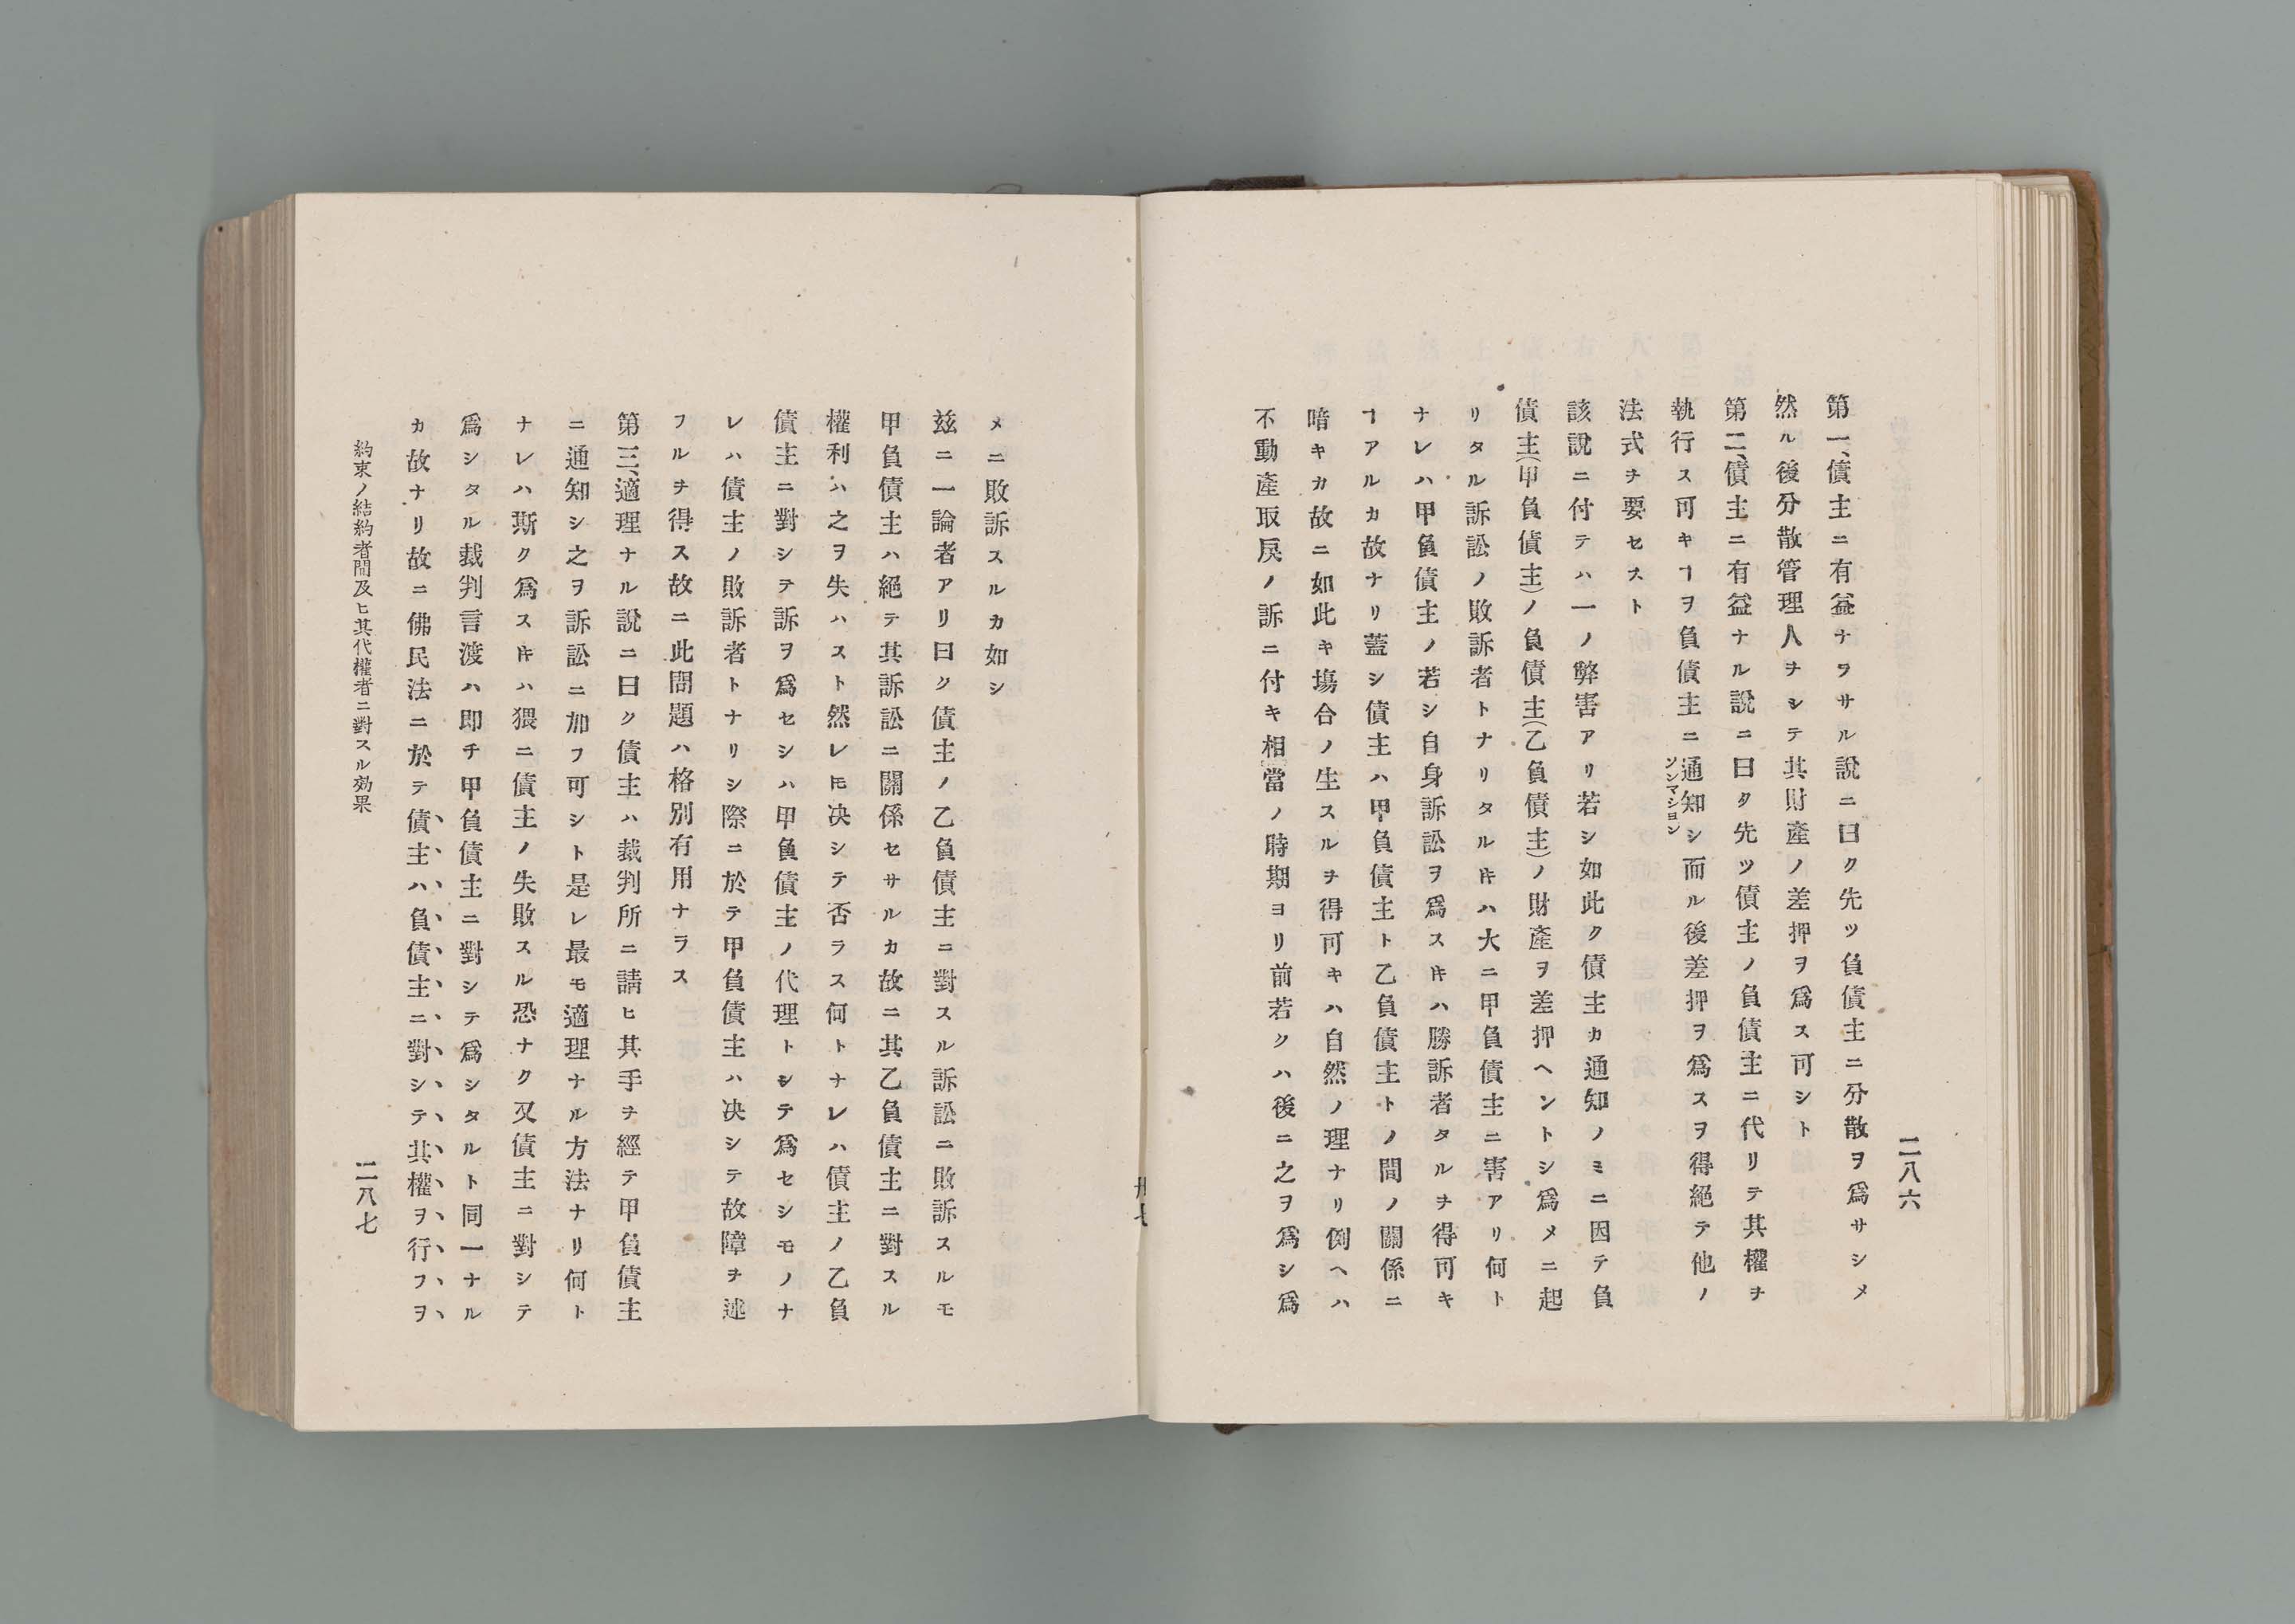 二八六
第一、債主ニ有益ナヲサル說ニ曰ク先ツ負債主ニ分散ヲ爲サシメ
然ル後分散管理人ヲシテ其財產ノ差押ヲ爲ス可シト
第二、債主ニ有益ナル說ニ曰ク先ツ債主ノ負債主ニ代リテ其權ヲ
執行ス可キヿヲ負債主ニ通知シ而ル後差押ヲ爲スヲ得絕テ他ノ
ソンマシヨン
法式ヲ要セスト
該說ニ付テハ一ノ弊害アリ若シ如此ク債主カ通知ノミニ因テ負
債主(甲負債主)ノ負債主(乙負債主)ノ財產ヲ差押ヘントシ爲メニ起
リタル訴訟ノ敗訴者トナリタルキハ大ニ甲負債主ニ害アリ何ト
ナレハ甲負債主ノ若シ自身訴訟ヲ爲スキハ勝訴者タルヲ得可キ
ヿアルカ故ナリ蓋シ債主ハ甲負債主ト乙負債主トノ間ノ關係ニ
暗キカ故ニ如此キ塲合ノ生スルヲ得可キハ自然ノ理ナリ例ヘハ
不動產取戾ノ訴ニ付キ相當ノ時期ヨリ前若クハ後ニ之ヲ爲シ爲
メニ敗訴スルカ如シ
玆ニ一論者アリ曰ク債主ノ乙負債主ニ對スル訴訟ニ敗訴スルモ
甲負債主ハ絕テ其訴訟ニ關係セサルカ故ニ其乙負債主ニ對スル
權利ハ之ヲ失ハスト然レ𪜈决シテ否ラス何トナレハ債主ノ乙負
債主ニ對シテ訴ヲ爲セシハ甲負債主ノ代理トシテ爲セシモノナ
レハ債主ノ敗訴者トナリシ際ニ於テ甲負債主ハ决シテ故障ヲ述
フルヲ得ス故ニ此問題ハ格別有用ナラス
第三、適理ナル說ニ曰ク債主ハ裁判所ニ請ヒ其手ヲ經テ甲負債主
ニ通知シ之ヲ訴訟ニ加フ可シト是レ最モ適理ナル方法ナリ何ト
ナレハ斯ク爲スキハ猥ニ債主ノ失敗スル恐ナク又債主ニ對シテ
爲シタル裁判言渡ハ即チ甲負債主ニ對シテ爲シタルト同一ナル
カ故ナリ故ニ佛民法ニ於テ債主ハ負債主ニ對シテ其權ヲ行フヲ
約束ノ結約者間及ヒ其代權者ニ對スル効果
二八七